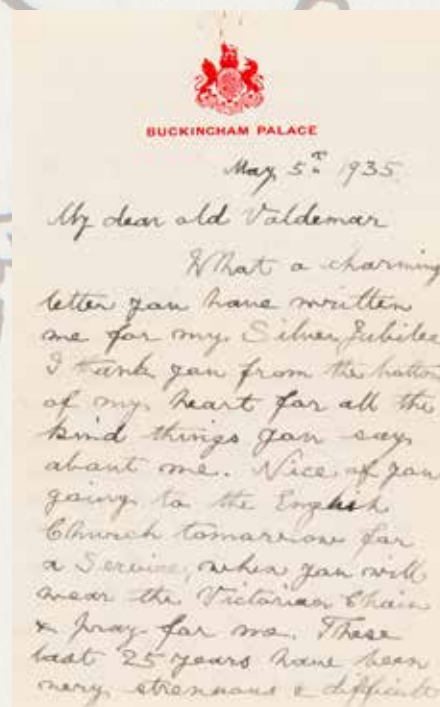 BUCKINGHAM PALACE
May 5th 1935.
My dear old Valdemar
What a charming
letter you have written
me for my Silver Jubilee
I thank you from the bottom
of my heart for all the
kind things you say
about me. Nice of you
going to the English
Church tomorrow for
a Service, when you will
wear the Victorian Chain
& pray for me. These
last 25 years have been
very strenuous & difficult